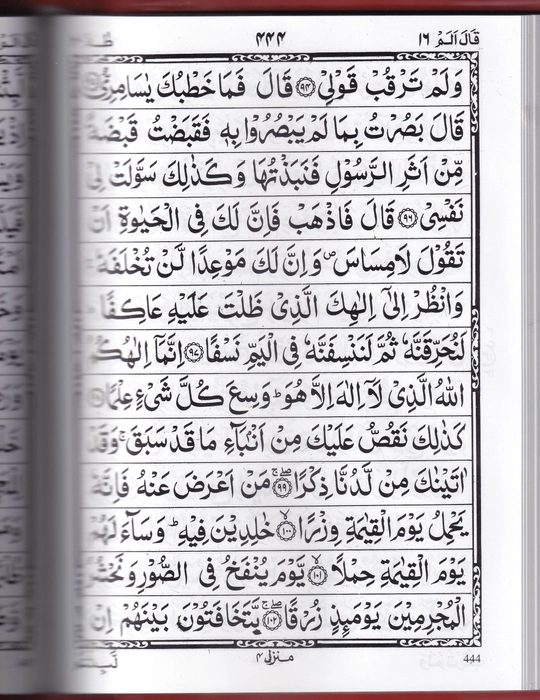 قَالَ اَلَمْ ١٦
٤٤٤
طٰهٰ
وَلَمْ تَرْقُبْ قَوْلِیْ ﴿۹۴﴾ قَالَ فَمَا خَطْبُكَ یٰسَامِرِیُّ
قَالَ بَصُرْتُ بِمَا لَمْ یَبْصُرُوْا بِهٖ فَقَبَضْتُ قَبْضَةً
مِّنْ اَثَرِ الرَّسُوْلِ فَنَبَذْتُهَا وَكَذٰلِكَ سَوَّلَتْ لِیْ
نَفْسِیْ ﴿۹۶﴾ قَالَ فَاذْهَبْ فَاِنَّ لَكَ فِی الْحَیٰوةِ اَنْ
تَقُوْلَ لَا مِسَاسَ ۪ وَاِنَّ لَكَ مَوْعِدًا لَّنْ تُخْلَفَهٗ ۚ
وَانْظُرْ اِلٰۤی اِلٰهِكَ الَّذِیْ ظَلْتَ عَلَیْهِ عَاكِفًا ؕ
لَنُحَرِّقَنَّهٗ ثُمَّ لَنَنْسِفَنَّهٗ فِی الْیَمِّ نَسْفًا ﴿۹۷﴾ اِنَّمَاۤ اِلٰهُكُمُ
اللّٰهُ الَّذِیْ لَاۤ اِلٰهَ اِلَّا هُوَ ؕ وَسِعَ كُلَّ شَیْءٍ عِلْمًا
كَذٰلِكَ نَقُصُّ عَلَیْكَ مِنْ اَنْۢبَآءِ مَا قَدْ سَبَقَ ۚ وَقَدْ
اٰتَیْنٰكَ مِنْ لَّدُنَّا ذِكْرًا ﴿۹۹﴾ مَنْ اَعْرَضَ عَنْهُ فَاِنَّهٗ
یَحْمِلُ یَوْمَ الْقِیٰمَةِ وِزْرًا ﴿۱۰۰﴾ خٰلِدِیْنَ فِیْهِ ؕ وَسَآءَ لَهُمْ
یَوْمَ الْقِیٰمَةِ حِمْلًا ﴿۱۰۱﴾ یَّوْمَ یُنْفَخُ فِی الصُّوْرِ وَنَحْشُرُ
الْمُجْرِمِیْنَ یَوْمَىِٕذٍ زُرْقًا ﴿۱۰۲﴾ یَّتَخَافَتُوْنَ بَیْنَهُمْ اِنْ
منزل ٤
444